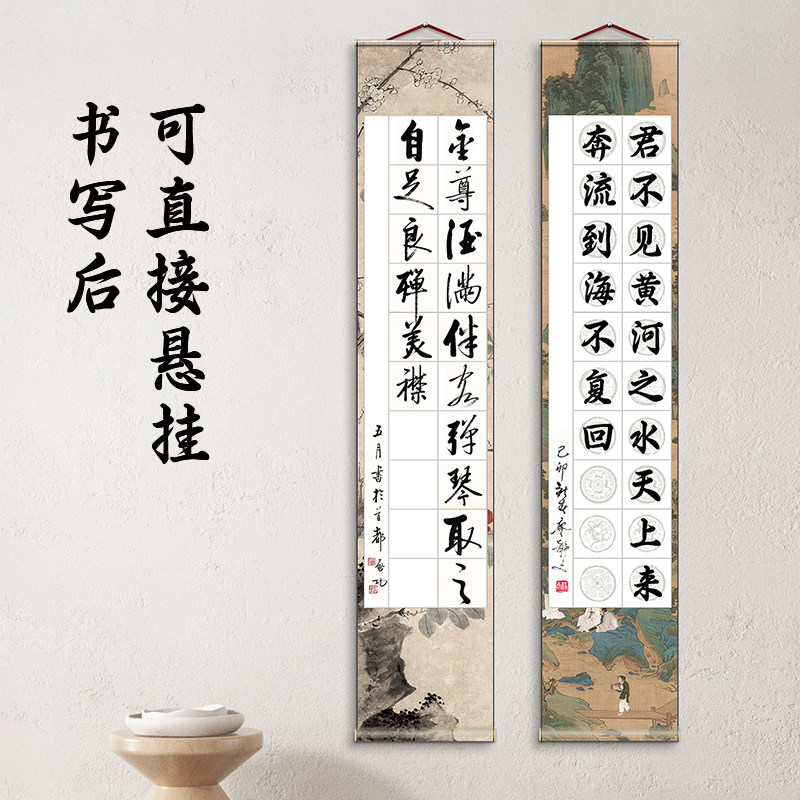 书写后
可直接悬挂
金尊酒满伴客弹琴取之
自足良殚美襟
五月書於首都 启功
君不见黄河之水天上来
奔流到海不复回
己卯新春